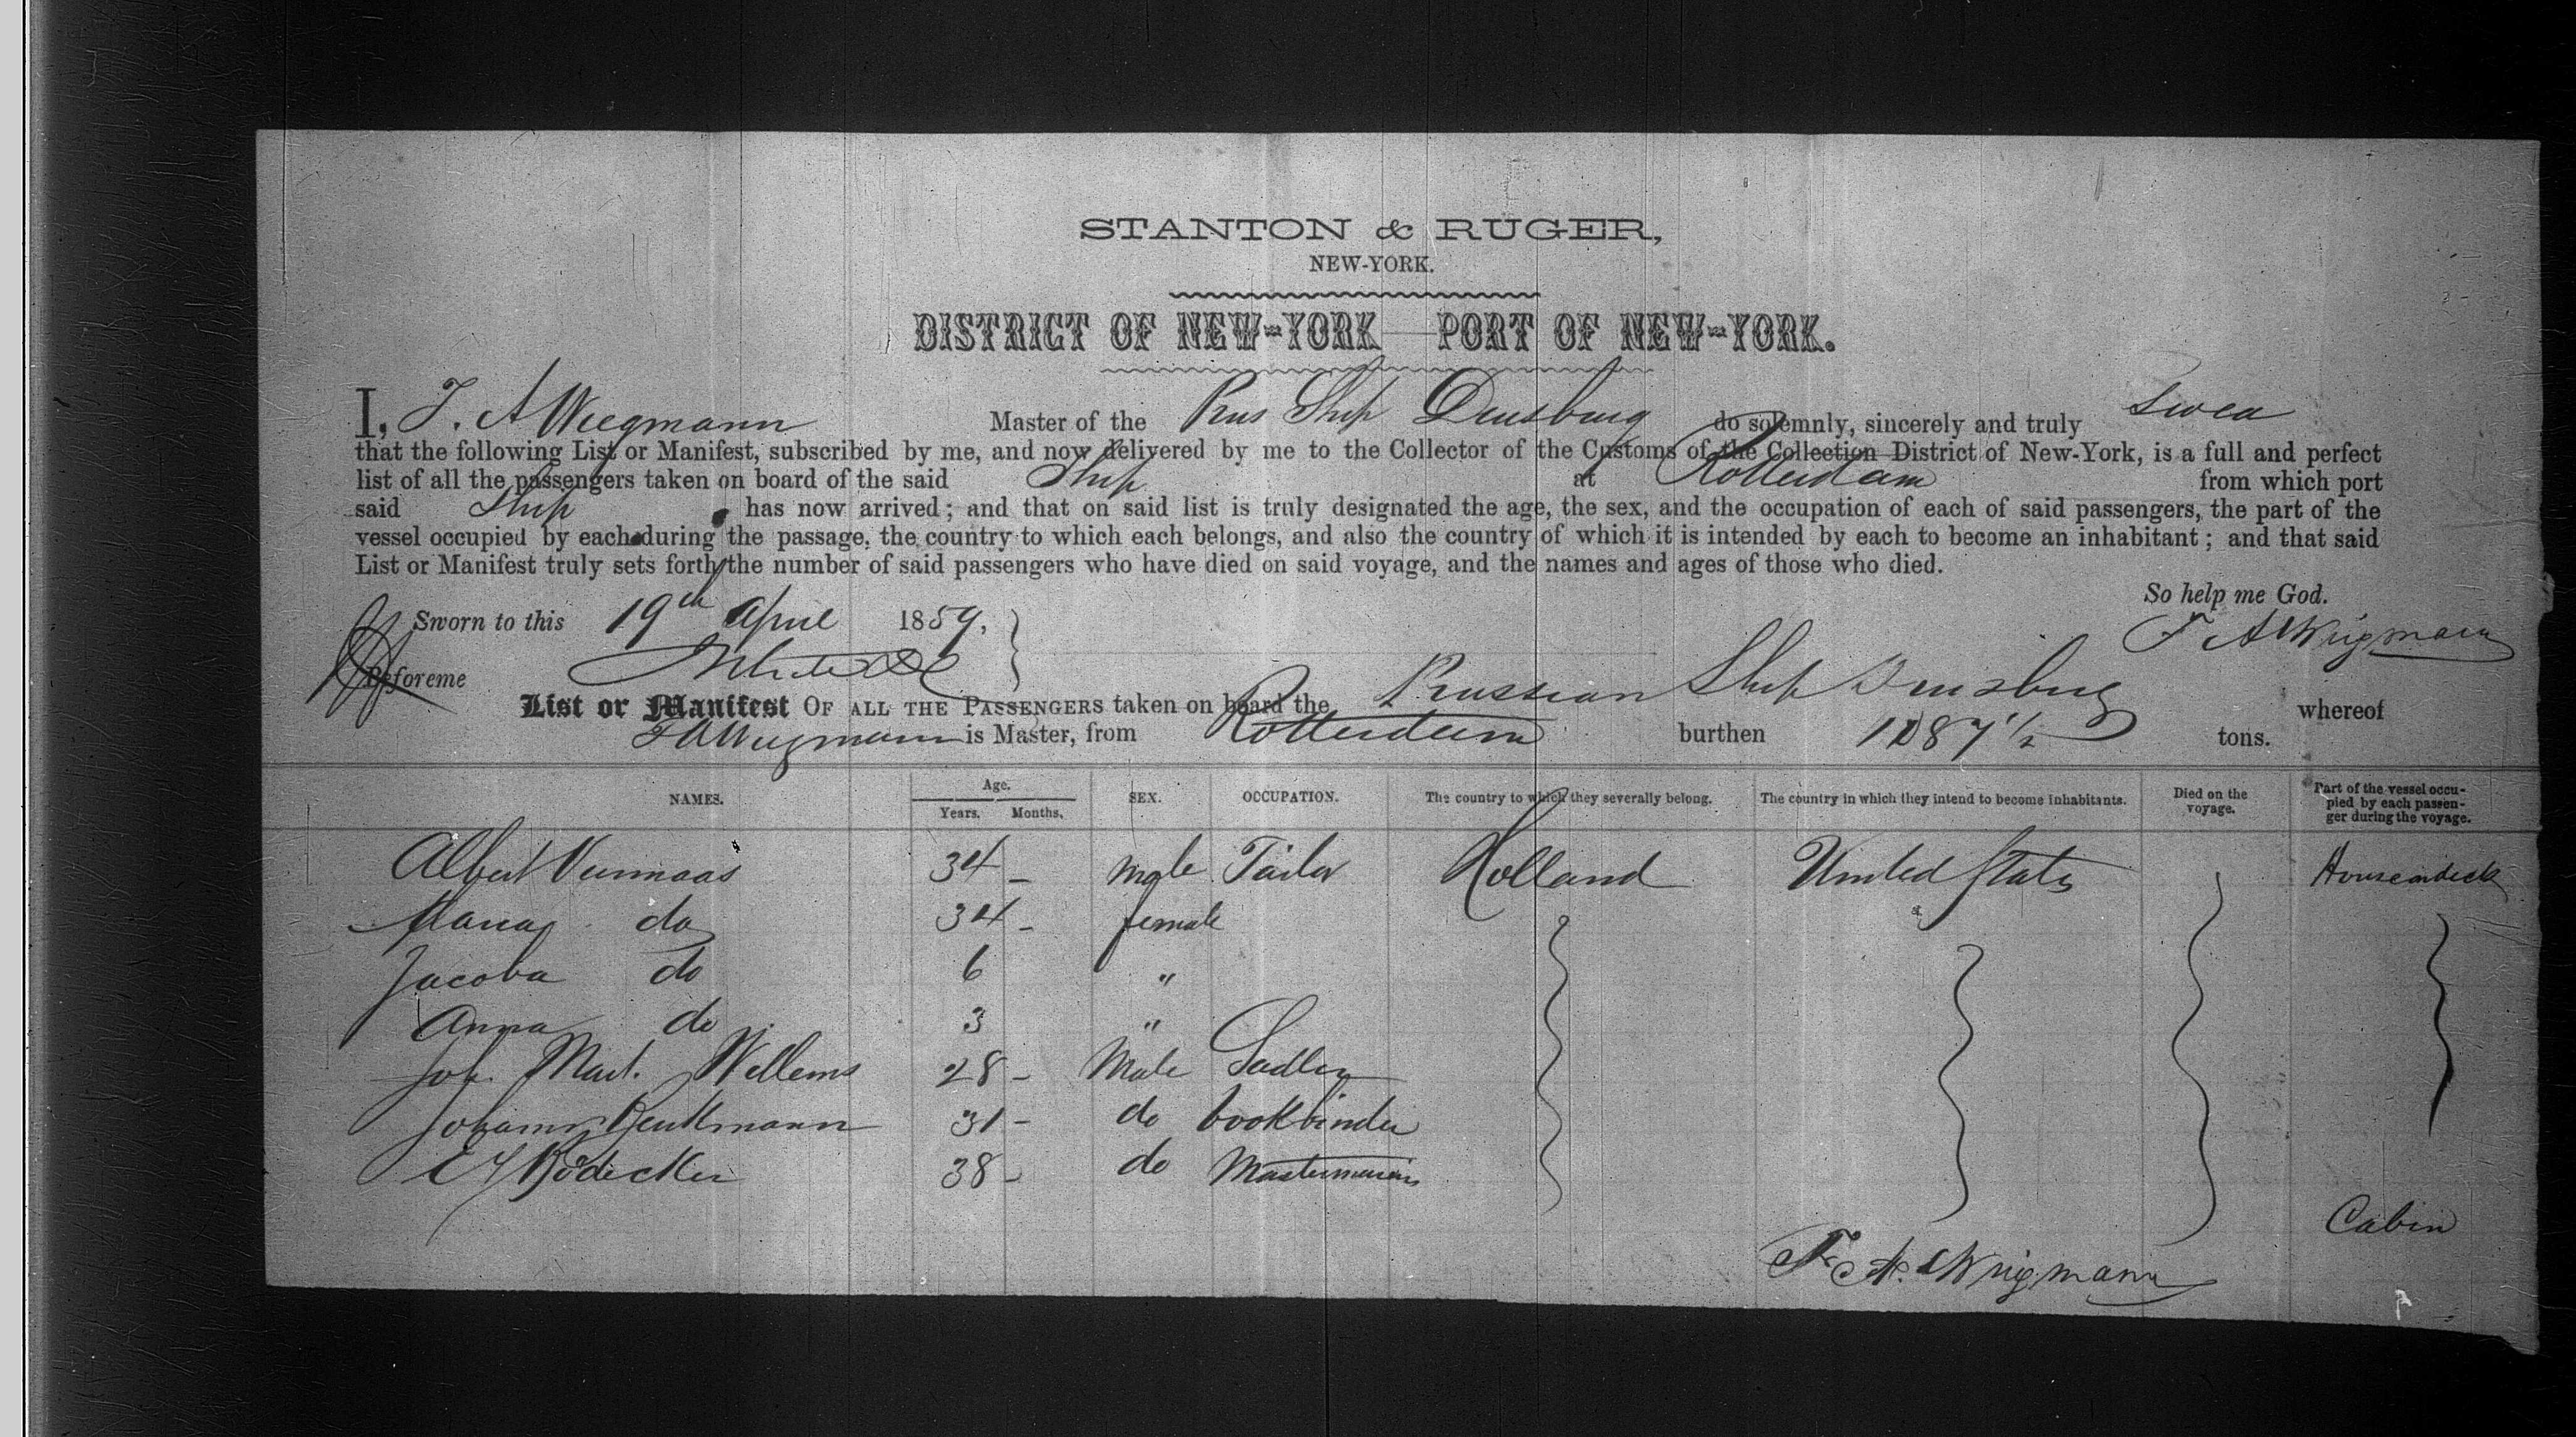 STANTON & RUGER,
NEW-YORK.
DISTRICT OF NEW-YORK—PORT OF NEW-YORK.
I, F. A Wiegmann Master of the Prus Ship Duisburg do solemnly, sincerely and truly Swea
that the following List or Manifest, subscribed by me, and now delivered by me to the Collector of the Customs of the Collection District of New-York, is a full and perfect
list of all the passengers taken on board of the said Ship at Rotterdam from which port
said Ship has now arrived; and that on said list is truly designated the age, the sex, and the occupation of each of said passengers, the part of the
vessel occupied by each during the passage, the country to which each belongs, and also the country of which it is intended by each to become an inhabitant; and that said
List or Manifest truly sets forth the number of said passengers who have died on said voyage, and the names and ages of those who died.
So help me God.
Sworn to this 19th April 1859, F A Wiegmann
Before me
List or Manifest OF ALL THE PASSENGERS taken on board the Prussian Ship Duisburg whereof
F A Wiegmann is Master, from Rotterdam burthen 1087 1/2 tons.
NAMES. Age. Years. Months. SEX. OCCUPATION. The country to which they severally belong. The country in which they intend to become inhabitants. Died on the voyage. Part of the vessel occupied by each passenger during the voyage.
Albert Vermaas 34 - male Tailor Holland United States House on deck
Maria do 34 - female
Jacoba do 6 "
Anna do 3 "
Joh. Mart. Willems 28 - Male Sadler
Johann 31 - do bookbinder
Bödecker 38 - do Mastermarin
Cabin
F. A. Wiegmann